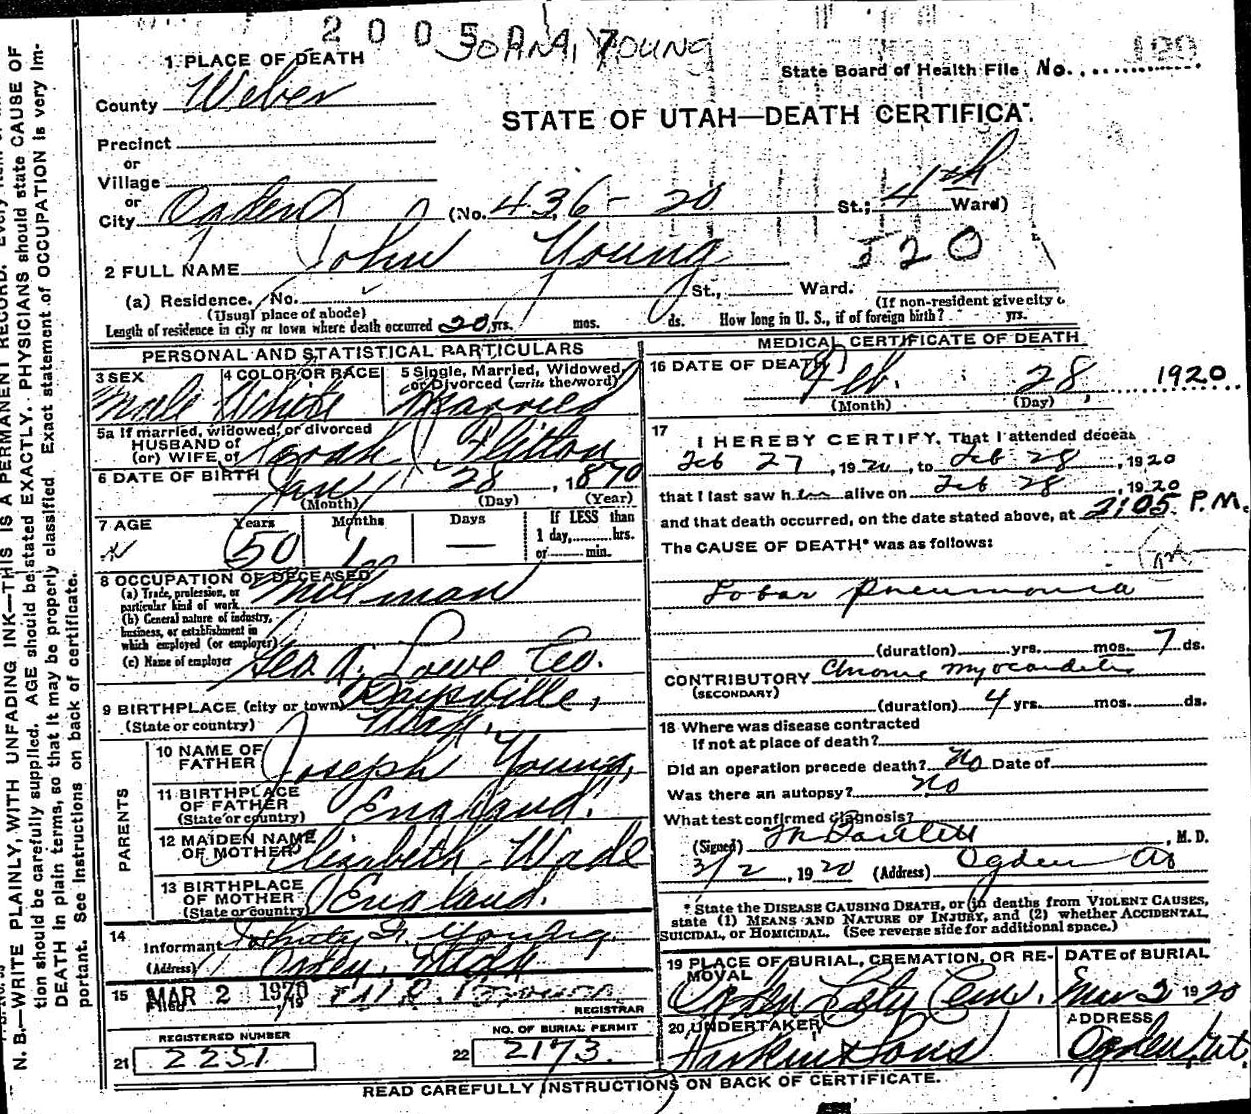 2005
JOHN, YOUNG
1 PLACE OF DEATH
State Board of Health File No. 120
County Weber
STATE OF UTAH—DEATH CERTIFICAT
Precinct
or
Village
or
City Ogden (No. 436 - 20 St.; 4th Ward)
520
2 FULL NAME John Young
(a) Residence. No. St., Ward.
(Usual place of abode) (If non-resident give city o
Length of residence in city or town where death occurred 20 yrs. mos. ds. How long in U. S., if of foreign birth? yrs.
PERSONAL AND STATISTICAL PARTICULARS
3 SEX Male
4 COLOR OR RACE White
5 Single, Married, Widowed, or Divorced (write the word) Married
5a If married, widowed, or divorced
HUSBAND of
(or) WIFE of Sarah Flitton
6 DATE OF BIRTH Jan 28, 1870
(Month) (Day) (Year)
7 AGE Years Months Days If LESS than
50 1 — 1 day, hrs.
or min.
8 OCCUPATION OF DECEASED
(a) Trade, profession, or
particular kind of work Millman
(b) General nature of industry,
business, or establishment in
which employed (or employer)
(c) Name of employer Geo A. Lowe Co.
9 BIRTHPLACE (city or town) Kaysville,
(State or country) Utah.
PARENTS
10 NAME OF
FATHER Joseph Young,
11 BIRTHPLACE
OF FATHER England.
(State or country)
12 MAIDEN NAME
OF MOTHER Elizabeth Wade
13 BIRTHPLACE
OF MOTHER England.
(State or country)
14
Informant Young.
(Address) Utah
15 Filed MAR 2 1920
REGISTRAR
REGISTERED NUMBER
21 2251
NO. OF BURIAL PERMIT
22 2173
MEDICAL CERTIFICATE OF DEATH
16 DATE OF DEATH Feb. 28, 1920
(Month) (Day)
17
I HEREBY CERTIFY, That I attended deceas
Feb 27, 1920, to Feb 28, 1920
that I last saw him alive on Feb 28, 1920
and that death occurred, on the date stated above, at 2:05 P.M.
The CAUSE OF DEATH* was as follows:
Lobar Pneumonia
(duration) yrs. mos. 7 ds.
CONTRIBUTORY Chronic myocarditis
(SECONDARY)
(duration) 4 yrs. mos. ds.
18 Where was disease contracted
If not at place of death?
Did an operation precede death? No Date of
Was there an autopsy? No
What test confirmed diagnosis?
(Signed) , M. D.
3/2, 1920 (Address) Ogden Ut
* State the DISEASE CAUSING DEATH, or in deaths from VIOLENT CAUSES,
state (1) MEANS AND NATURE OF INJURY, and (2) whether ACCIDENTAL,
SUICIDAL, OR HOMICIDAL. (See reverse side for additional space.)
19 PLACE OF BURIAL, CREMATION, OR RE-
MOVAL Ogden City Cem.
DATE OF BURIAL
Mar 2 1920
20 UNDERTAKER
& Sons
ADDRESS
Ogden, Ut.
READ CAREFULLY INSTRUCTIONS ON BACK OF CERTIFICATE.
N. B.—WRITE PLAINLY, WITH UNFADING INK—THIS IS A PERMANENT RECORD. Every
tion should be carefully supplied. AGE should be stated EXACTLY. PHYSICIANS should state CAUSE OF
DEATH in plain terms, so that it may be properly classified. Exact statement of OCCUPATION is very im-
portant. See instructions on back of certificate.